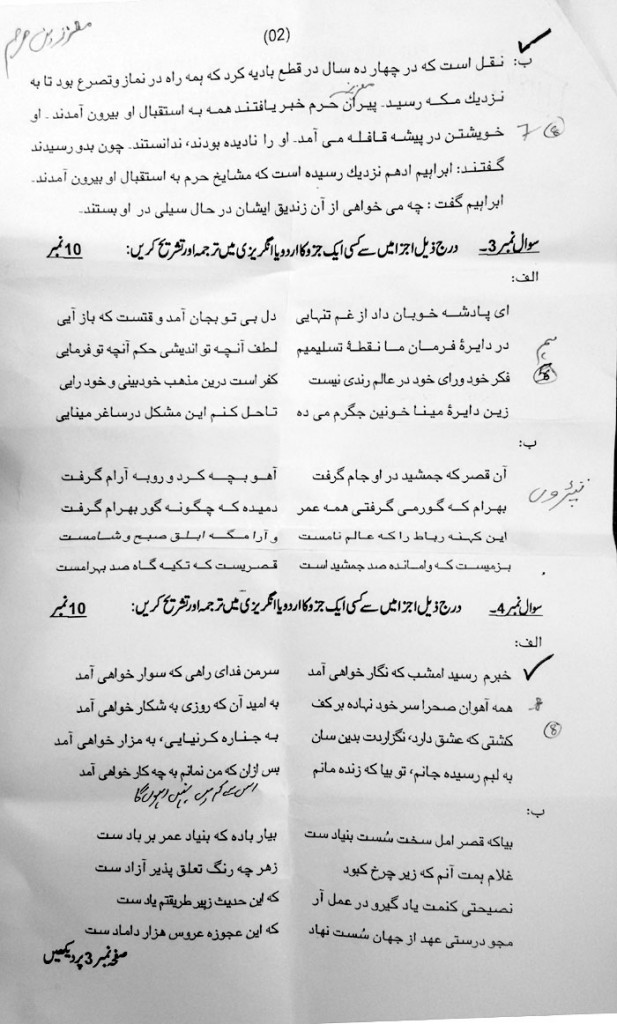 (02)
ب: نقل است که در چهار ده سال در قطع بادیه کرد که ہمه راه در نماز وتصرع بود تا به
نزدیك مکه رسید۔ پیران حرم خبر یافتند همه به استقبال او بیرون آمدند ۔ او
خویشتن در پیشه قافله می آمد۔ او را نادیده بودند، ندانستند۔ چون بدو رسیدند
گفتند: ابراہیم ادهم نزدیك رسیده است که مشایخ حرم به استقبال او بیرون آمدند۔
ابراہیم گفت : چه می خواهی از آن زندیق ایشان در حال سیلی در او بستند۔
سوال نمبر 3۔ درج ذیل اجزا میں سے کسی ایک جزو کا اردو یا انگریزی میں ترجمہ اور تشریح کریں: 10 نمبر
الف:
ای پادشه خوبان داد از غم تنہایی دل بی تو بجان آمد و قتست که باز آیی
در دایرۂ فرمان ما نقطۂ تسلیمیم لطف آنچه تو اندیشی حکم آنچه تو فرمایی
فکر خود ورای خود در عالم رندی نیست کفر است درین مذهب خودبینی و خود رایی
زین دایرۂ مینا خونین جگرم می ده تا حل کنم این مشکل در ساغر مینایی
ب:
آن قصر که جمشید در او جام گرفت آهو بچه کرد و روبه آرام گرفت
بهرام که گور می گرفتی همه عمر دمیده که چگونه گور بهرام گرفت
این کهنه رباط را که عالم نامست و آرامگه ابلق صبح و شامست
بزمیست که وامانده صد جمشید است قصریست که تکیه گاه صد بهرامست
سوال نمبر 4۔ درج ذیل اجزا میں سے کسی ایک جزو کا اردو یا انگریزی میں ترجمہ اور تشریح کریں: 10 نمبر
الف:
خبرم رسید امشب که نگار خواهی آمد سر من فدای راهی که سوار خواهی آمد
همه آهوان صحرا سر خود نهاده بر کف به امید آن که روزی به شکار خواهی آمد
کششی که عشق دارد، نگزاردت بدین سان به جنازه گر نیایی، به مزار خواهی آمد
به لبم رسیده جانم، تو بیا که زنده مانم پس ازان که من نمانم به چه کار خواهی آمد
ب:
بیاکه قصر امل سخت سُست بنیاد ست بیار باده که بنیاد عمر بر باد ست
غلام ہمت آنم که زیر چرخ کبود زهر چه رنگ تعلق پذیر آزاد ست
نصیحتی کنمت یاد گیرو در عمل آر که این حدیث زپیر طریقتم یاد ست
مجو درستی عهد از جهان سُست نهاد که این عجوزه عروس هزار داماد ست
صفحہ نمبر 3 پر دیکھیں